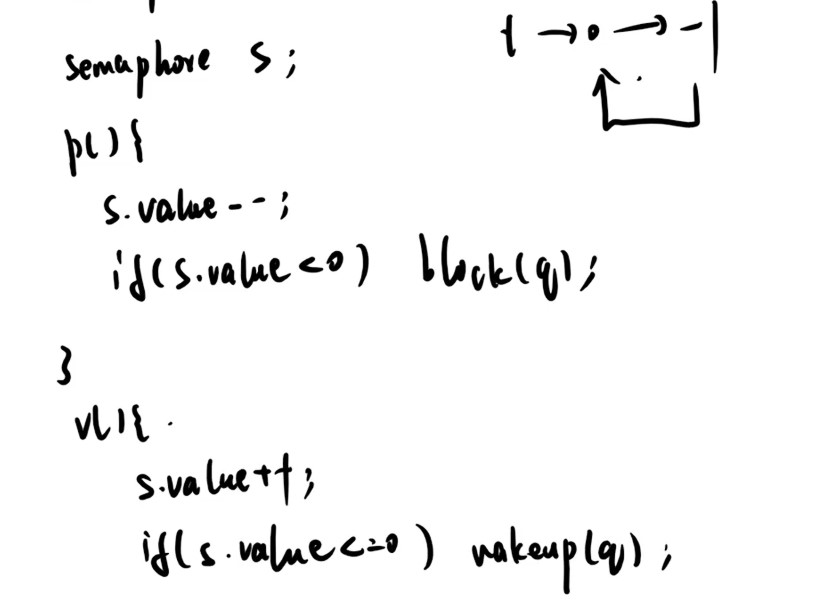 semaphore s;
1 → 0 → -1
p(){
s.value--;
if(s.value<0) block(q);
}
v(){
s.value++;
if(s.value<=0) wakeup(q);